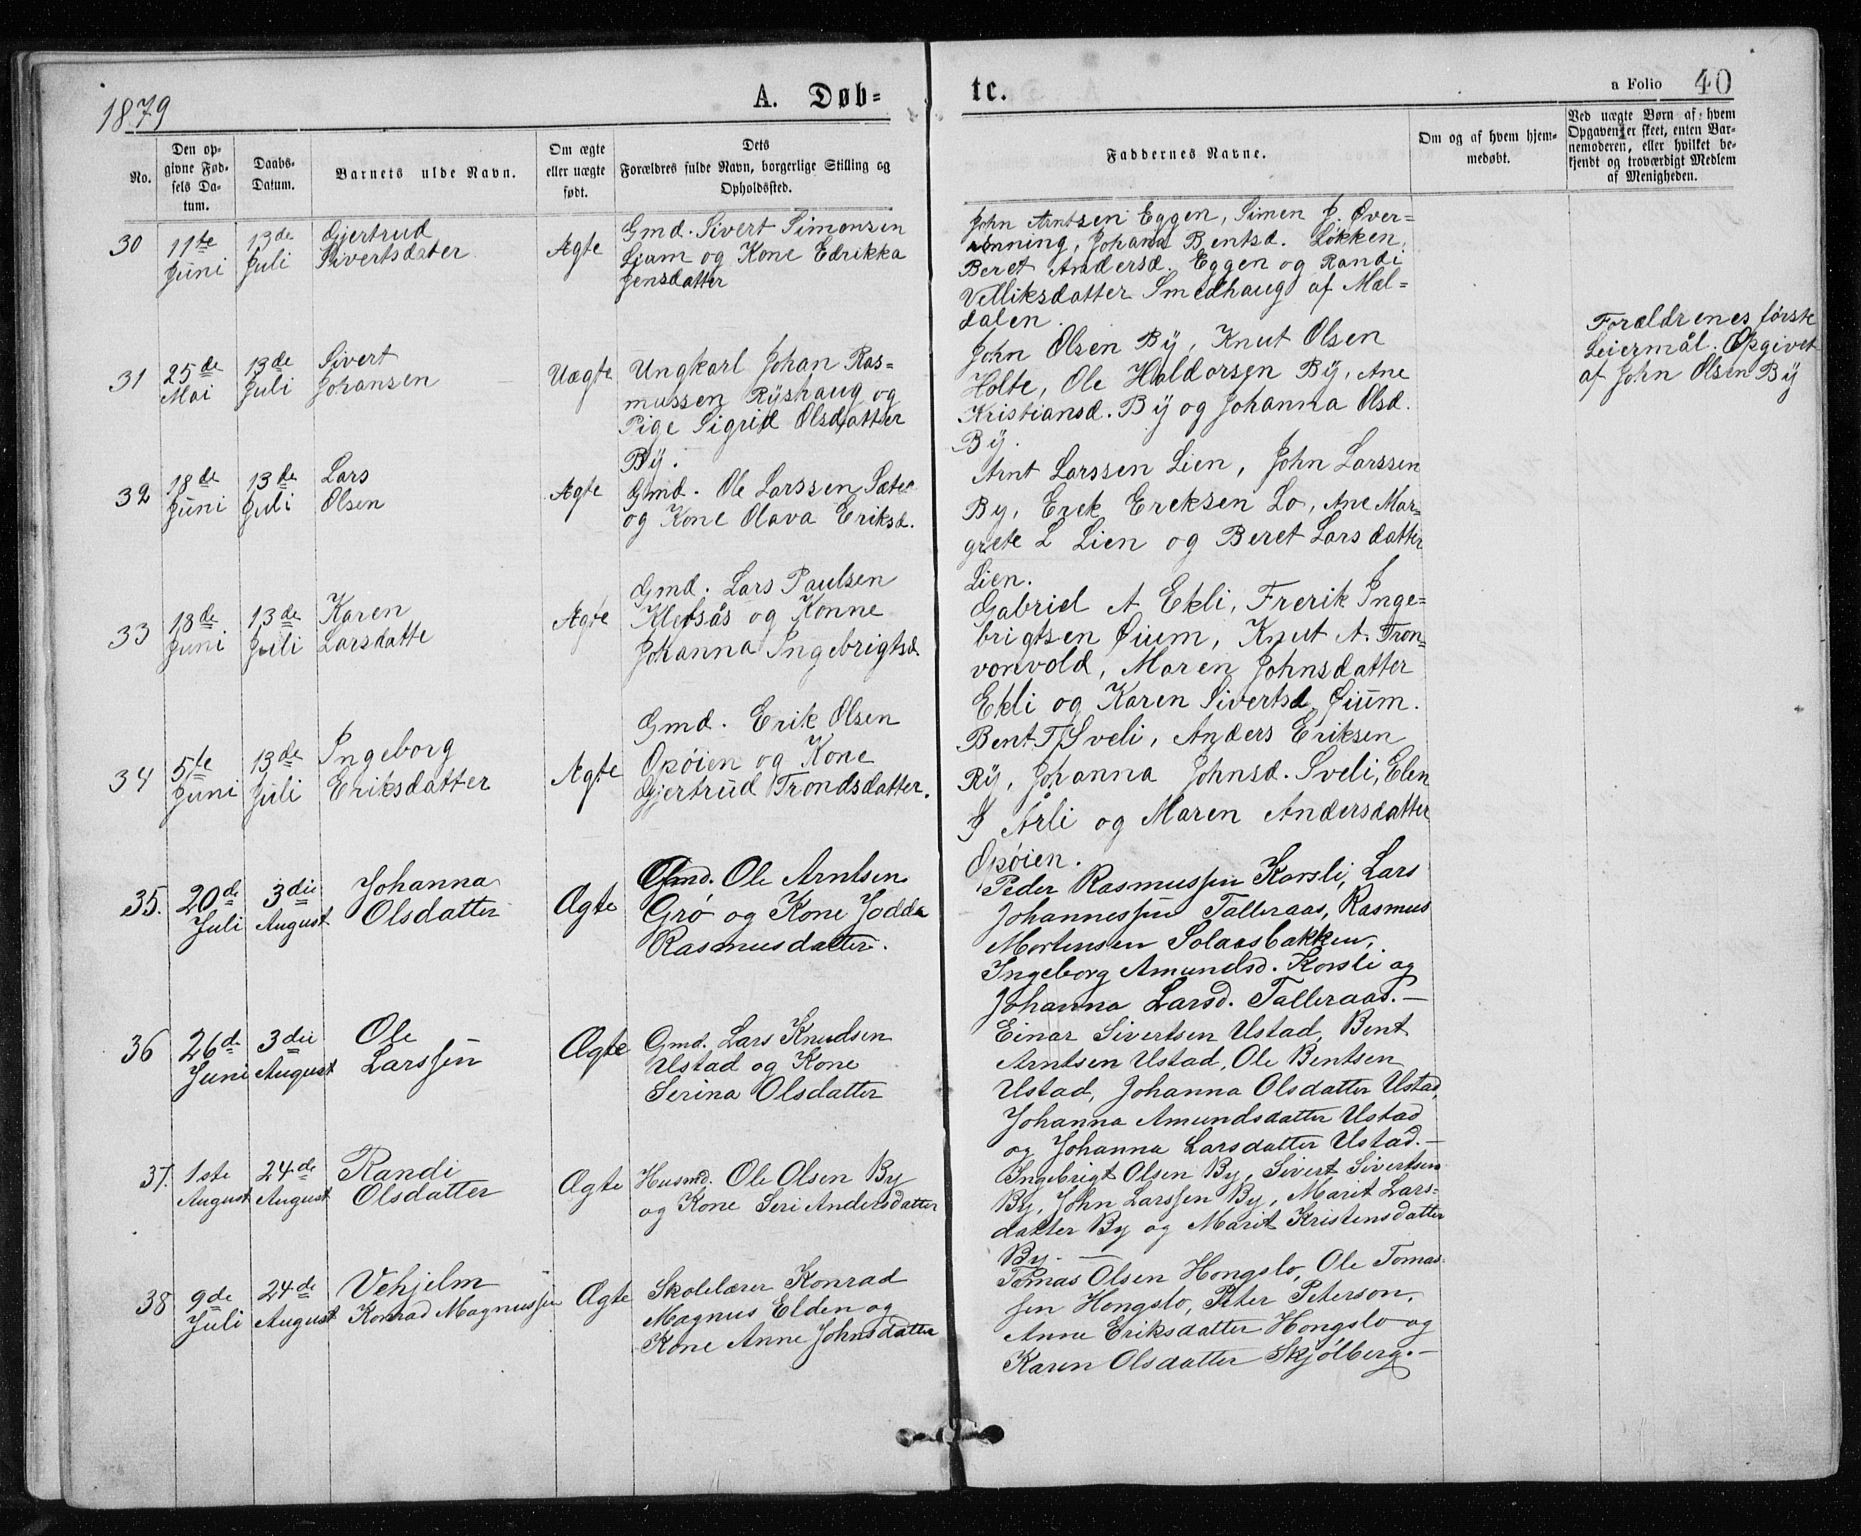 1879
A. Døb-
te.
a Folio 40
No.
Den op-
givne Fød-
sels Da-
tum.
Daabs-
Datum.
Barnets ulde Navn.
Om ægte
eller uægte
født.
Dets
Forældres fulde Navn, borgerlige Stilling og
Opholdssted.
Faddernes Navne.
Om og af hvem hjem-
medøbt.
Ved uægte Børn af hvem
Opgaven er skeet, enten Bar-
nemoderen, eller hvilket be-
kjendt og troværdigt Medlem
af Menigheden.
30
11te
Juni
13de
Juli
Gjertrud
Sivertsdater
Ægte
Gmd. Sivert Simonsen
og Kone Edrikka
Jensdatter
John Arntsen Eggen, Simen J. Øver-
Johana Bentsd. Løkken,
Beret Andersd. Eggen og Randi
Velliksdatter Smedhaug af Mæl-
dalen.
31
25de
Mai
13de
Juli
Sivert
Johansen
Uægte
Ungkarl Johan Ras-
mussen Ryshaug og
Pige Sigrid Olsdatter
By.
John Olsen By, Knut Olsen
Holte, Ole Haldorsen By, Ane
Kristiansd. By og Johanna Olsd.
By.
Forældrenes første
Leiermål. Opgivet
af John Olsen By
32
18de
Juni
13de
Juli
Lars
Olsen
Ægte
Gmd. Ole Larssen Sæter
og Kone Olava Eriksd.
Arnt Larssen Lien, John Larssen
By, Erek Ereksen Lo, Ane Mar-
grete L Lien og Beret Larsdatter
Lien.
33
18de
Juni
13de
Juli
Karen
Larsdatte
Ægte
Gmd. Lars Paulsen
og Konne
Johanna Ingebrigtsd.
Gabriel A Ekli, Frerik Inge-
brigtsen Øium, Knut A. Tron-
vonvold, Maren Johnsdatter
Ekli og Karen Sivertsd Øium.
34
5te
Juni
13de
Juli
Ingeborg
Eriksdatter
Ægte
Gmd. Erik Olsen
Opøien og Kone
Gjertrud Trondsdatter.
Bent T Sveli, Anders Eriksen
Ry, Johanna Johnsd. Sveli, Elen
J Årli og Maren Andersdatter
Opøien.
35.
20de
Juli
3die
August
Johanna
Olsdatter
Ægte
Gmd. Ole Arntsen
Grø og Kone Jodda
Rasmusdatter.
Peder Rasmussen Korsli, Lars
Johannessen Talleraas, Rasmus
Mortensen Solaasbakken,
Ingeborg Amundsd. Korsli og
Johanna Larsd. Talleraas.—
36
26de
Juni
3die
August
Ole
Larssen
Ægte
Gmd. Lars Knudsen
Ustad og Kone
Serina Olsdatter
Einar Sivertsen Ustad, Bent
Arntsen Ustad, Ole Bentsen
Ustad, Johanna Olsdatter Ustad,
Johanna Amundsdatter Ustad
og Johanna Larsdatter Ustad.—
37.
1ste
August
24de
August
Randi
Olsdatter
Ægte
Husmd. Ole Olsen By
og Kone Seri Andersdatter
Ingebrigt Olsen By, Sivert Sivertsen
By, John Larssen By, Marit Lars-
datter By og Marit Kristensdatter
By.—
38
9de
Juli
24de
August
Vehjelm
Konrad Magnussen
Ægte
Skolelærer Konrad
Magnus Elden og
Kone Anne Johnsdatter
Tomas Olsen Hongslo, Ole Tomas-
sen Hongslo, Peter Peterson,
Anne Eriksdatter Hongslo og
Karen Olsdatter Skjølberg.—